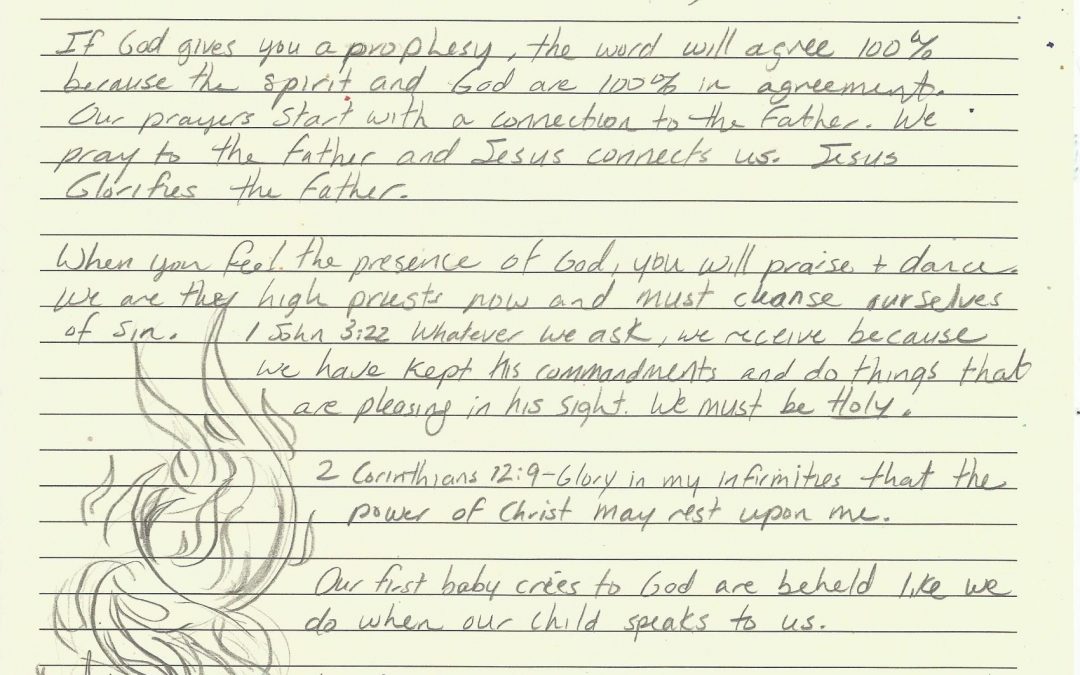 If God gives you a prophesy, the word will agree 100%
because the spirit and God are 100% in agreement.
Our prayers start with a connection to the Father. We
pray to the father and Jesus connects us. Jesus
Glorifies the Father.
When you feel the presence of God, you will praise + dance.
We are they high priests now and must cleanse ourselves
of sin. 1 John 3:22 Whatever we ask, we receive because
we have kept his commandments and do things that
are pleasing in his sight. We must be Holy.
2 Corinthians 12:9-Glory in my infirmities that the
power of Christ may rest upon me.
Our first baby cries to God are beheld like we
do when our child speaks to us.